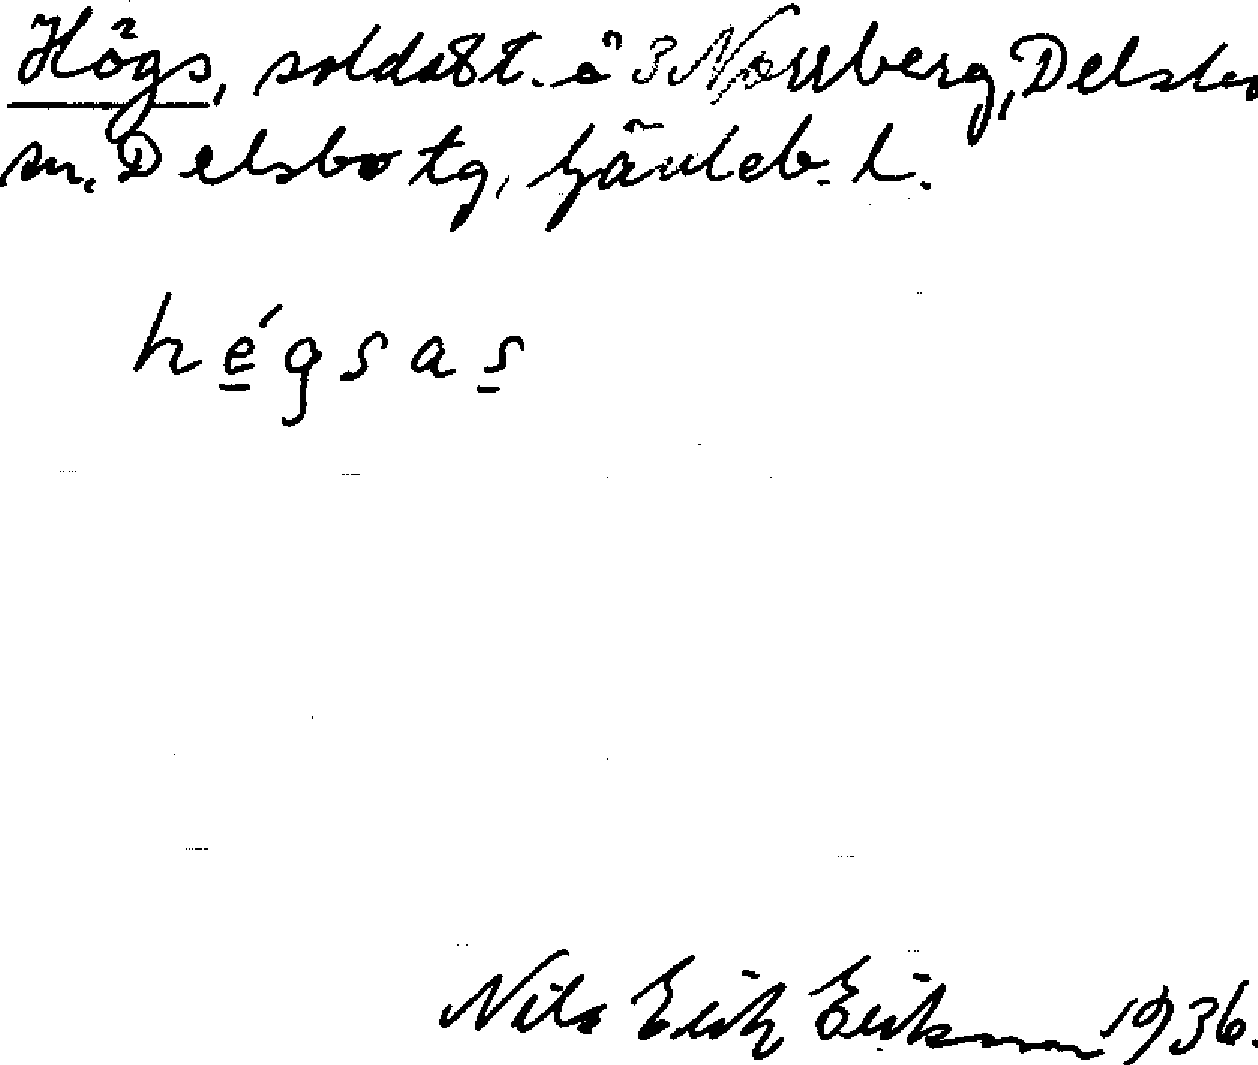 Högs, soldatt. å 3 Norrberg, Delsbo
sn. Delsbo tg, Gävleb. l.
hégsas
Nils Erik Erikson 1936.